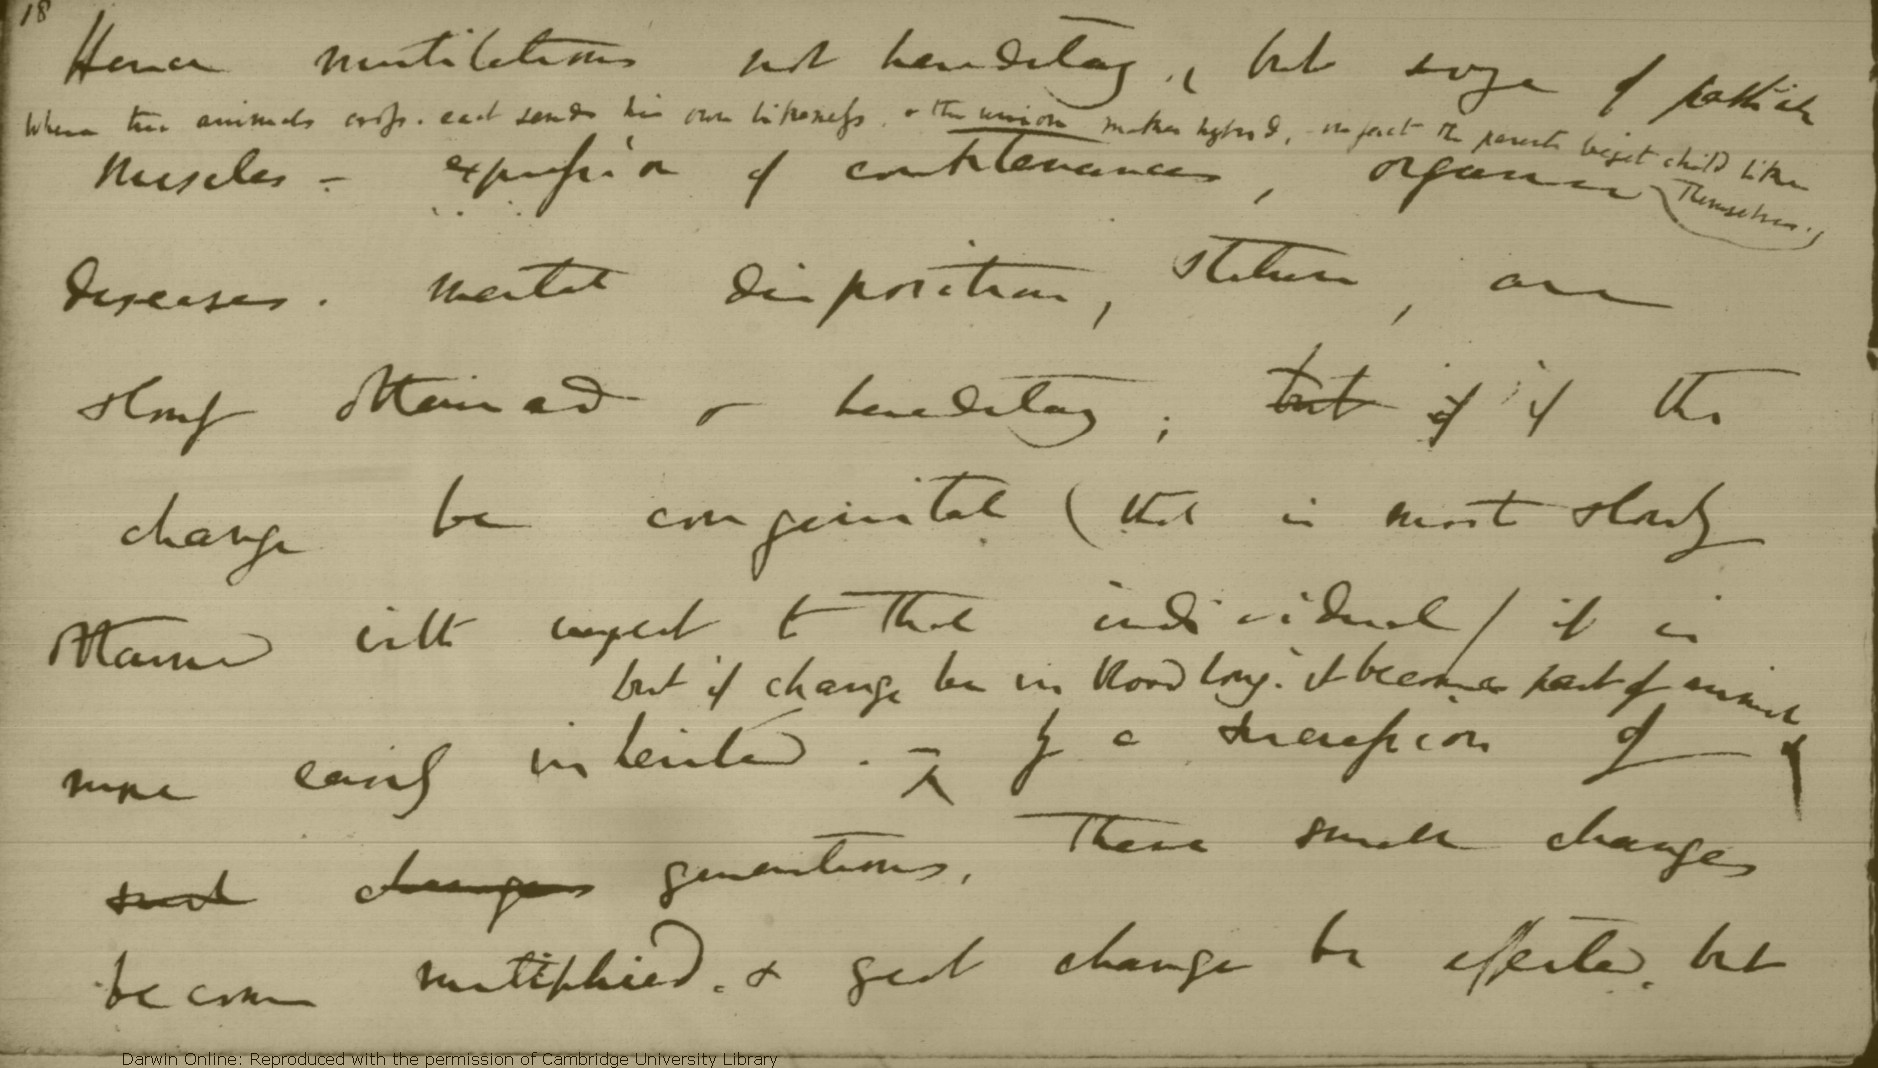 18
Hence mutilations not hereditary, but size of particular
When two animals cross. each sends his own likeness. & the union makes hybrid, in fact the parents beget child like
themselves.
muscles — expression of countenances, organic
diseases. mental disposition, stature, are
slowly obtained & hereditary; but if if the
change be congenital (that is most slowly
obtained with respect to that individual) it is
but if change be in blood long. it becomes part of animal
more easily inherited. — by a succession of
such changes generations, these small changes
become multiplied. & great change be effected. but
Darwin Online: Reproduced with the permission of Cambridge University Library